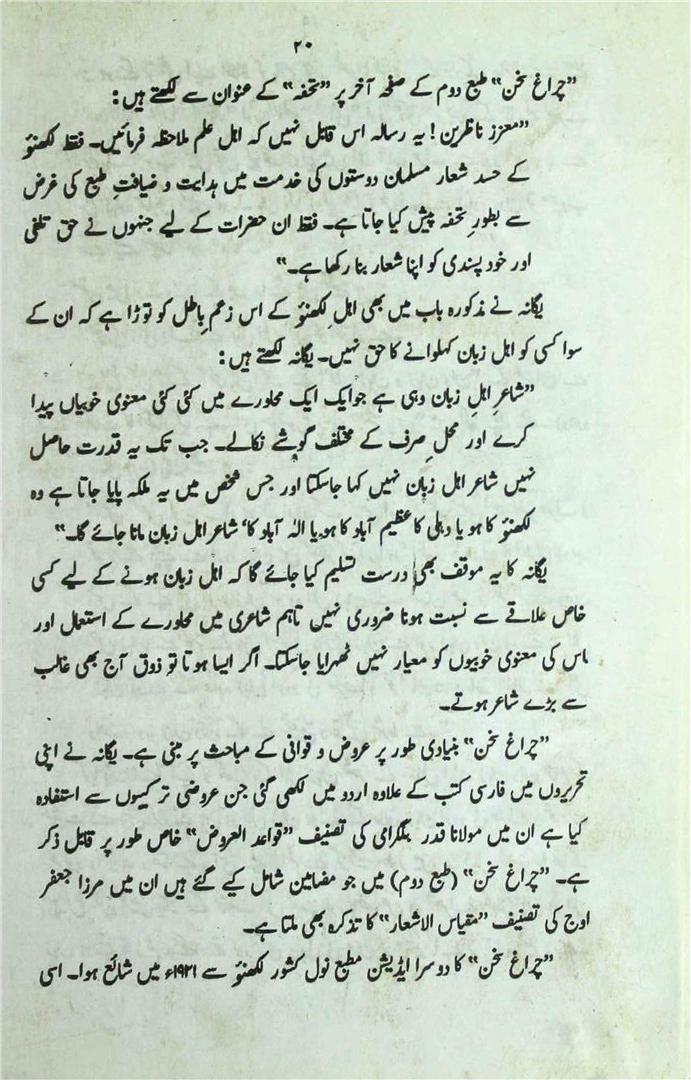 ۲۰
”چراغ سخن“ طبع دوم کے صفحہ آخر پر ”تحفہ“ کے عنوان سے لکھتے ہیں :
”معزز ناظرین ! یہ رسالہ اس قابل نہیں کہ اہل علم ملاحظہ فرمائیں۔ فقط لکھنؤ
کے حسد شعار مسلمان دوستوں کی خدمت میں ہدایت و ضیافتِ طبع کی غرض
سے بطورِ تحفہ پیش کیا جاتا ہے۔ فقط ان حضرات کے لیے جنہوں نے حق تلفی
اور خود پسندی کو اپنا شعار بنا رکھا ہے۔“
یگانہ نے مذکورہ باب میں بھی اہلِ لکھنؤ کے اس زعمِ باطل کو توڑا ہے کہ ان کے
سوا کسی کو اہل زبان کہلوانے کا حق نہیں۔ یگانہ لکھتے ہیں :
”شاعرِ اہلِ زبان وہی ہے جو ایک ایک محاورے میں کئی کئی معنوی خوبیاں پیدا
کرے اور محلِ صرف کے مختلف گوشے نکالے۔ جب تک یہ قدرت حاصل
نہیں شاعر اہل زبان نہیں کہا جاسکتا اور جس شخص میں یہ ملکہ پایا جاتا ہے وہ
لکھنؤ کا ہو یا دہلی کا عظیم آباد کا ہو یا الٰہ آباد کا، شاعر اہل زبان مانا جائے گا۔“
یگانہ کا یہ موقف بھی درست تسلیم کیا جائے گا کہ اہل زبان ہونے کے لیے کسی
خاص علاقے سے نسبت ہونا ضروری نہیں تاہم شاعری میں محاورے کے استعمال اور
اس کی معنوی خوبیوں کو معیار نہیں ٹھہرایا جاسکتا۔ اگر ایسا ہوتا تو ذوق آج بھی غالب
سے بڑے شاعر ہوتے۔
”چراغ سخن“ بنیادی طور پر عروض و قوافی کے مباحث پر مبنی ہے۔ یگانہ نے اپنی
تحریروں میں فارسی کتب کے علاوہ اردو میں لکھی گئی جن عروضی ترکیبوں سے استفادہ
کیا ہے ان میں مولانا قدر بلگرامی کی تصنیف ”قواعد العروض“ خاص طور پر قابل ذکر
ہے۔ ”چراغ سخن“ (طبع دوم) میں جو مضامین شامل کیے گئے ہیں ان میں مرزا جعفر
اوج کی تصنیف ”مقیاس الاشعار“ کا تذکرہ بھی ملتا ہے۔
”چراغ سخن“ کا دوسرا ایڈیشن مطبع نول کشور لکھنؤ سے ۱۹۲۱ء میں شائع ہوا۔ اسی